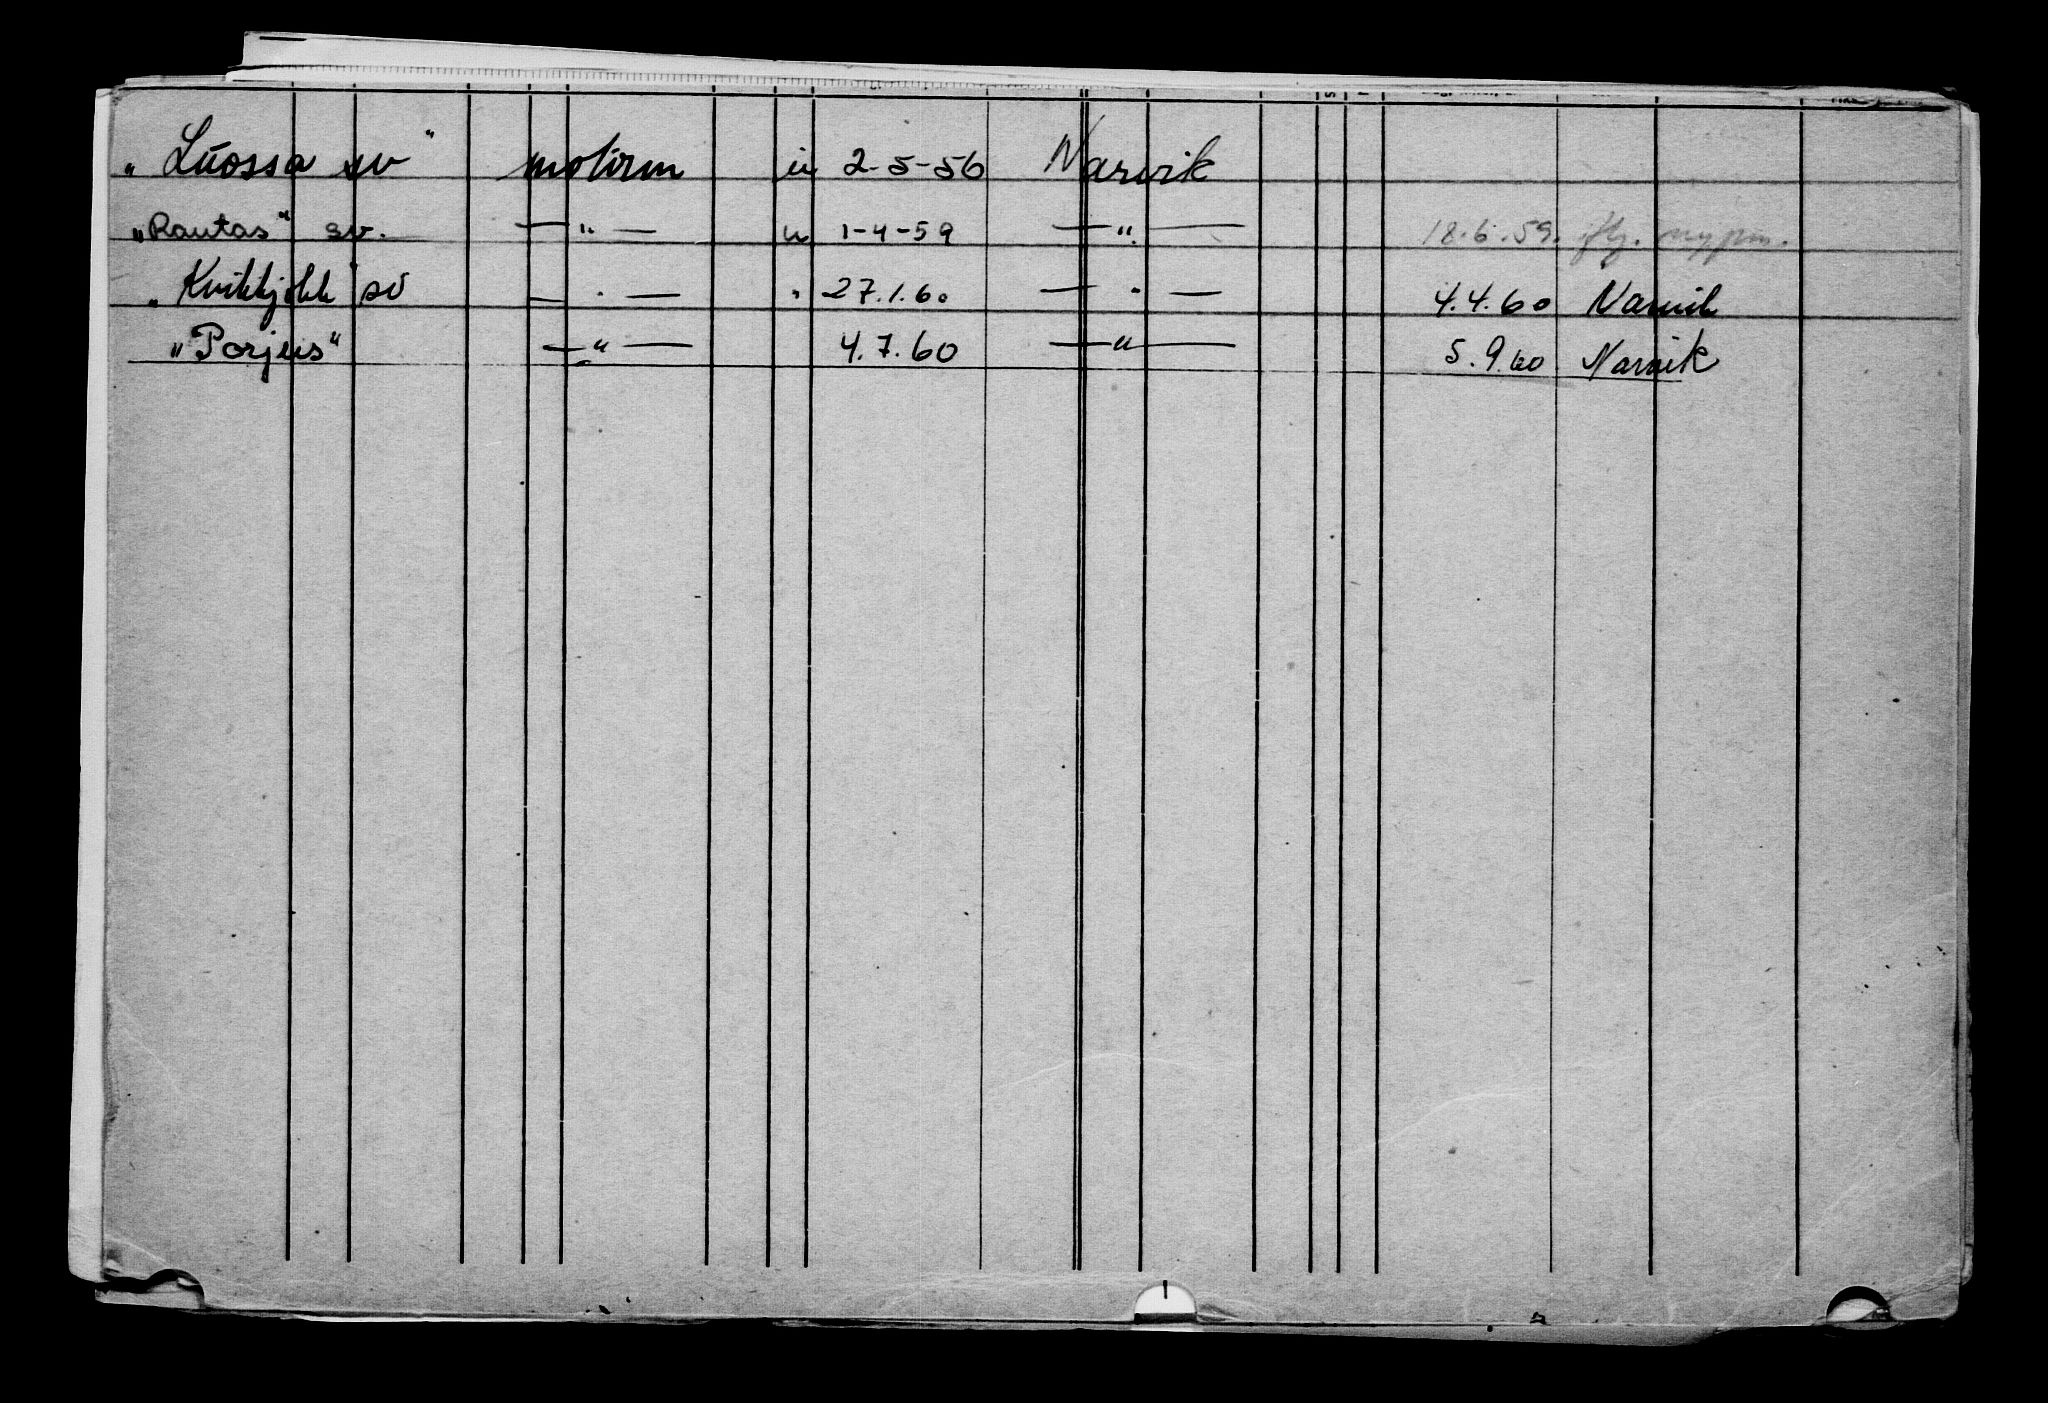 „Luossa sv" motorm u 2-5-56 Narvik
„Rautas" sv. — " — u 1-4-59 — " — 18.6.59. iflg. nypm.
„Kvikkjokk" sv — " — " 27.1.60 — " — 4.4.60 Narvik
„Porjus" — " — 4.7.60 — " — 5.9.60 Narvik